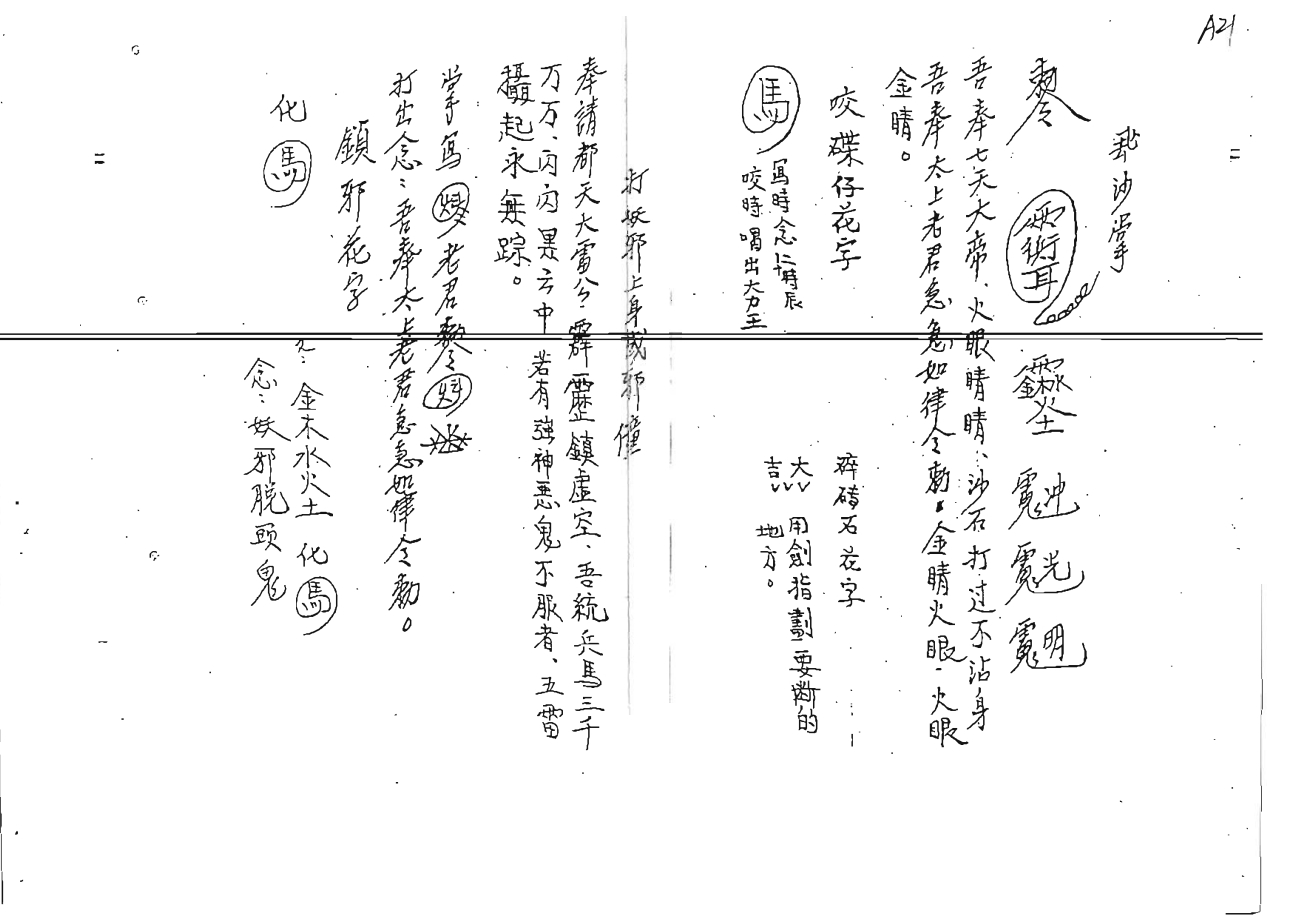 A21
沙掌
吾奉七天大帝、火眼睛睛、沙石打过不沾身
吾奉太上老君急急如律令勅。金睛火眼、火眼
金睛。
咬碟仔花字
馬
寫時念 時辰
咬時喝出大力王
碎磚石花字
大
吉
用劍指劃要断的
地方。
打妖邪上身或邪僮
奉請都天大雷公、霹靂鎮虛空、吾統兵馬三千
万万、闪闪黑云中 若有強神恶鬼不服者、五雷
攝起永無踪。
掌寫 老君
打出念：吾奉太上老君急急如律令勅。
鎖邪花字
化 馬
金木水火土 化 馬
念：妖邪脱頭鬼